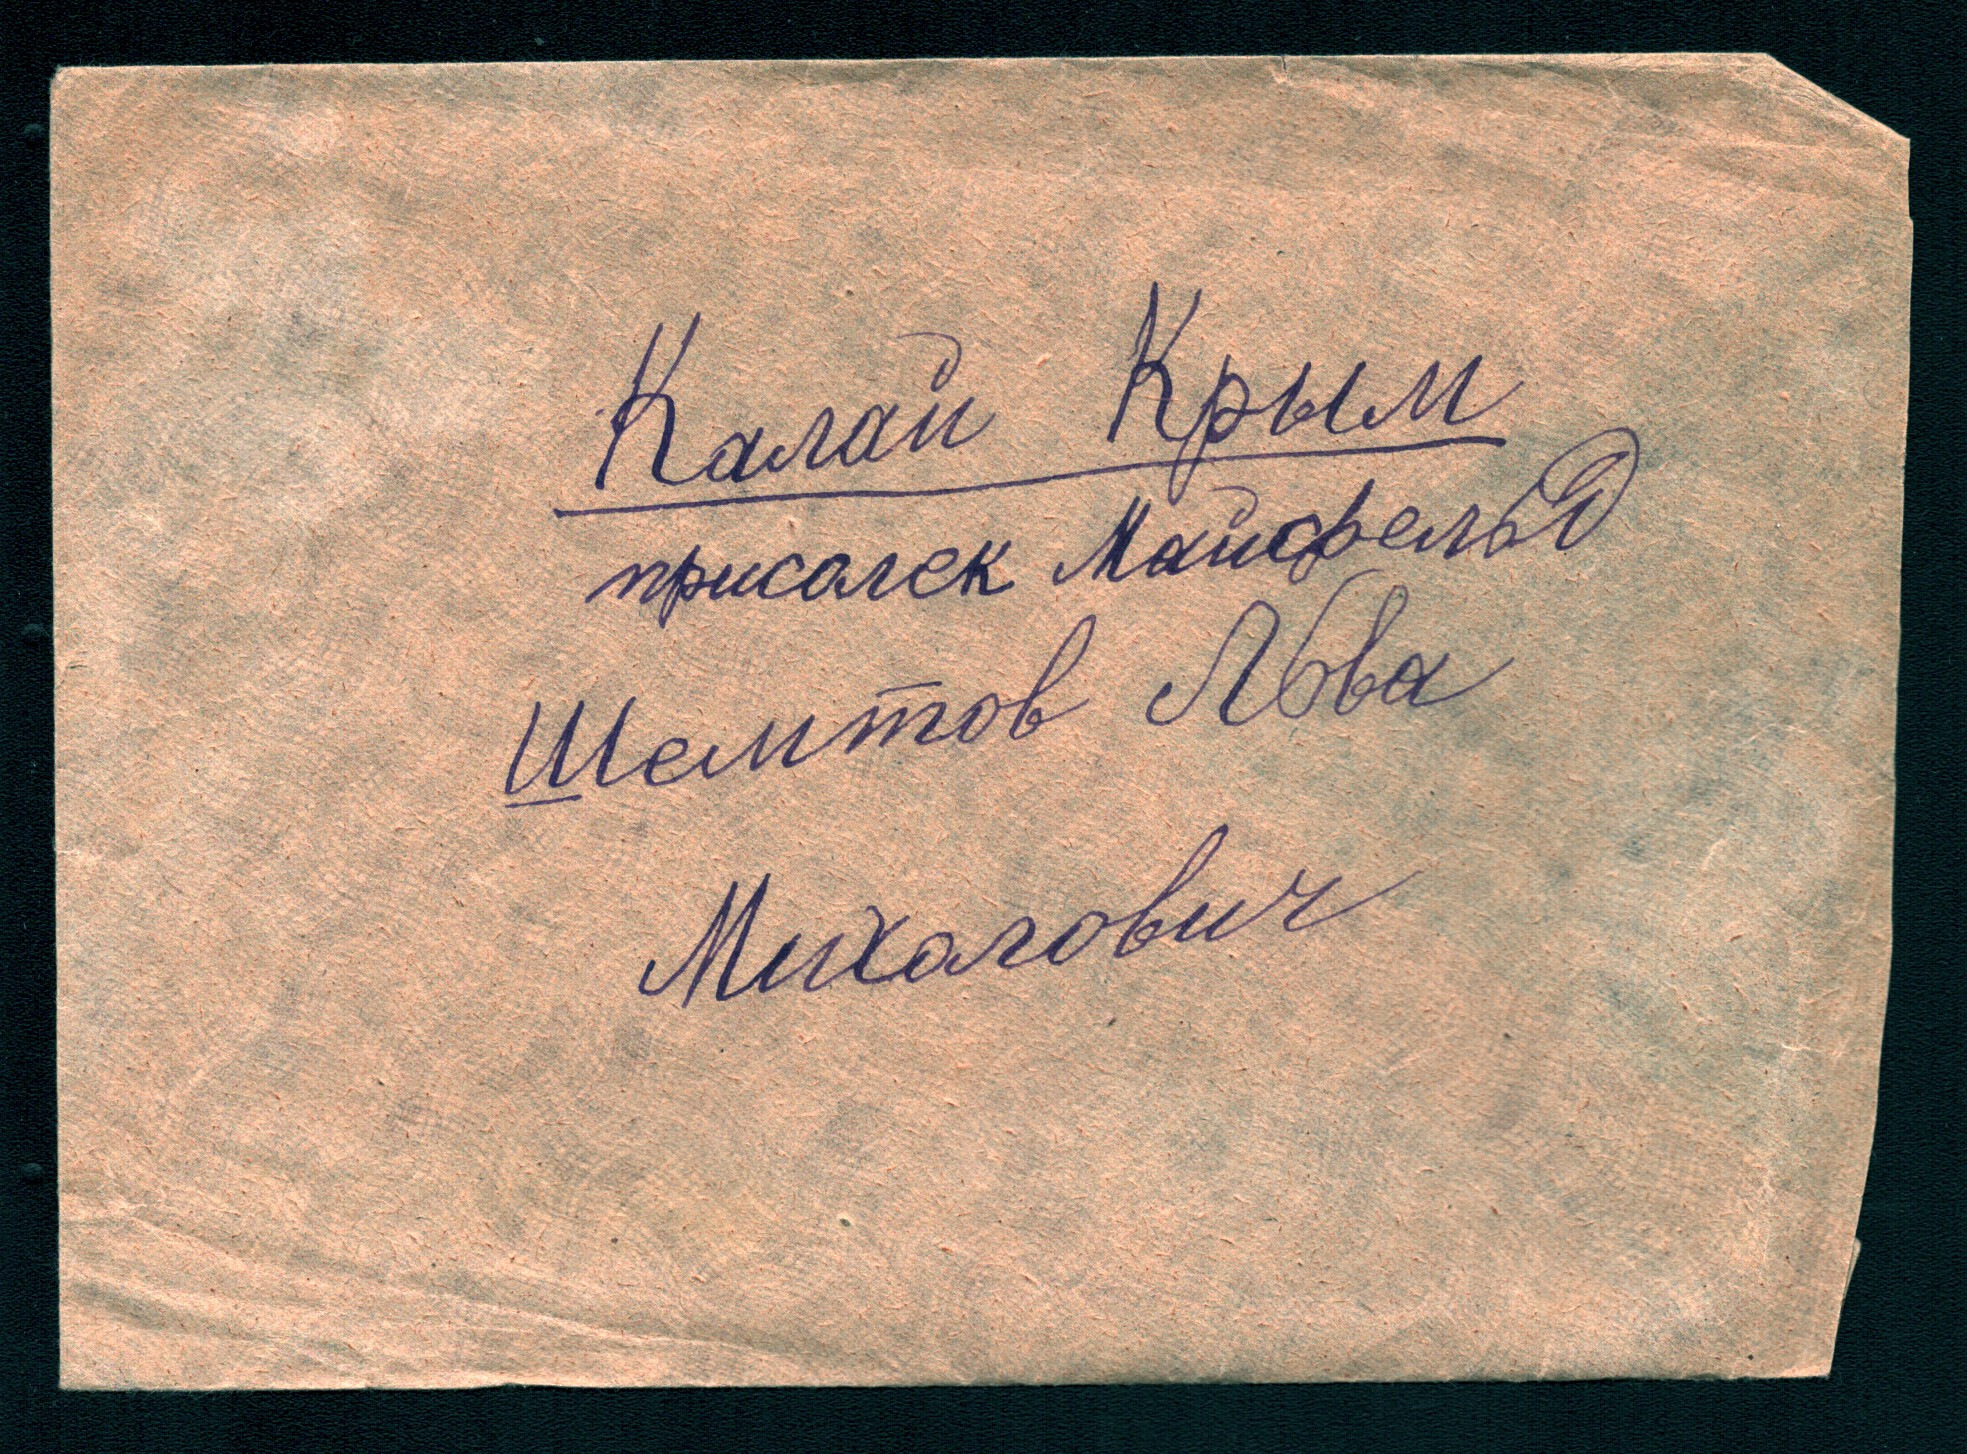 Калай Крым
присолек Майфельд
Шемтов Льва
Михолович